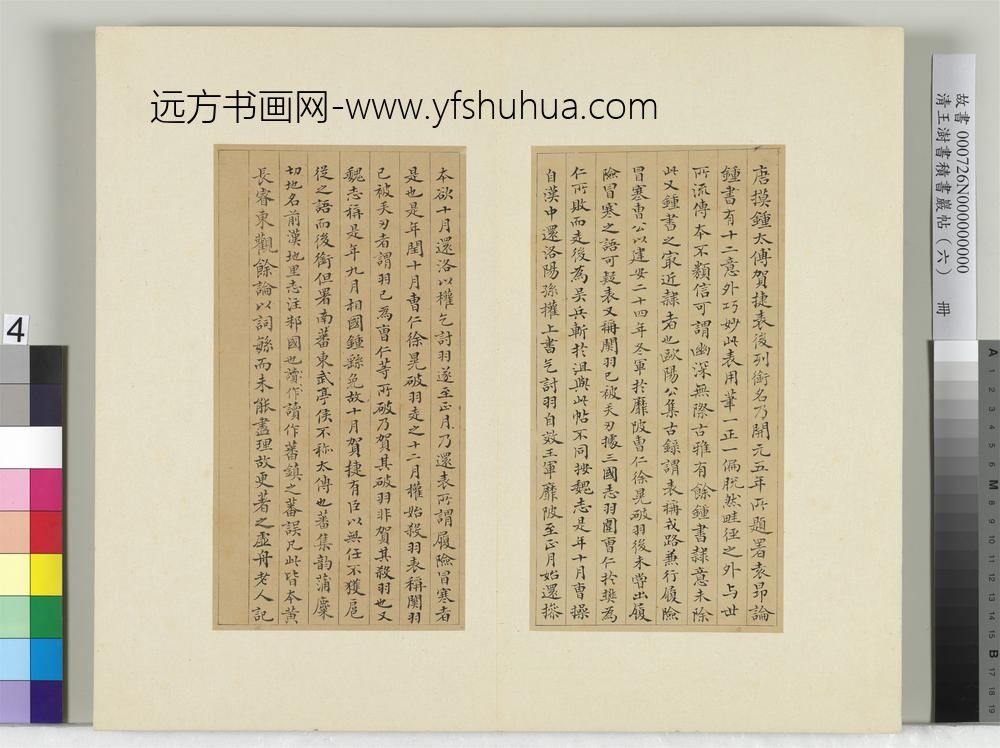 远方书画网-www.yfshuhua.com
唐摸鍾太傅賀捷表後列銜名乃開元五年所題署袁昂論
鍾書有十二意外巧妙此表用筆一正一偏脫然畦徑之外与世
所流傳本不類信可謂幽深無際古雅有餘鍾書隸意未除
此又鍾書之最近隸者也歐陽公集古錄謂表稱戎路兼行履險
冒寒曹公以建安二十四年冬軍於靡陂曹仁徐晃破羽後未嘗出履
險冒寒之語可疑表又稱關羽已被矢刃據三國志羽圍曹仁於樊為
仁所敗而走後為吳兵斬於沮與此帖不同按魏志是年十月曹操
自漢中還洛陽孫權上書乞討羽自效王軍靡陂至正月始還操
本欲十月還洛以權乞討羽遂至正月乃還表所謂履險冒寒者
是也是年閏十月曹仁徐晃破羽走之十二月權始殺羽表稱關羽
已被矢刃者謂羽已為曹仁等所破乃賀其破羽非賀其殺羽也又
魏志稱是年九月相國鍾繇免故十月賀捷有臣以無任不獲扈
從之語而後銜但署南蕃東武亭侯不称太傅也蕃集韵蒲麋
切地名前漢地里志注邾國也讀作讀作蕃鎮之蕃誤凡此皆本黃
長睿東觀餘論以詞緐而未能盡理故更著之虛舟老人記
故書 000726N000000000
清王澍書積書巖帖（六） 冊
4
A 1 2 3 4 5 6 M 8 9 10 11 12 13 14 15 B 17 18 19